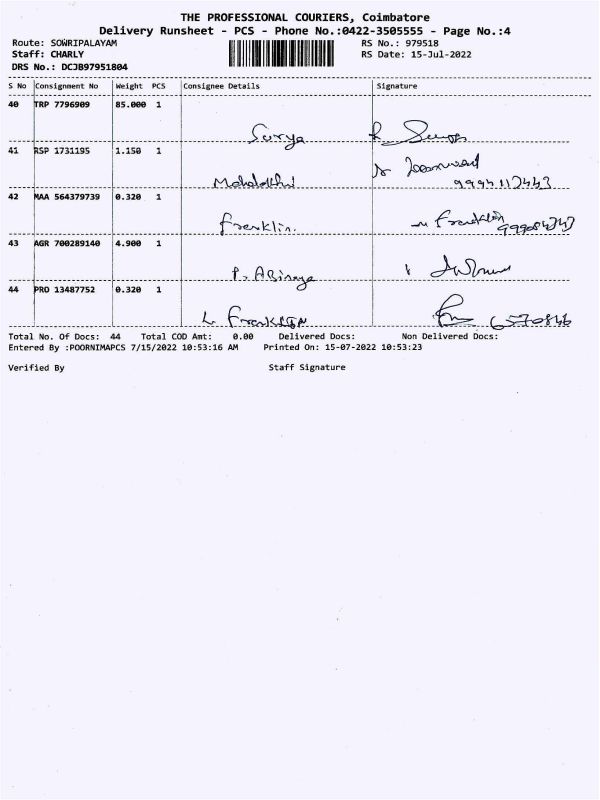 THE PROFESSIONAL COURIERS, Coimbatore
Delivery Runsheet - PCS - Phone No.:0422-3505555 - Page No.:4
Route: SOWRIPALAYAM RS No.: 979518
Staff: CHARLY RS Date: 15-Jul-2022
DRS No.: DCJB97951804
S No Consignment No Weight PCS Consignee Details Signature
40 TRP 7796909 85.000 1
Surya
41 RSP 1731195 1.150 1
42 MAA 564379739 0.320 1
Franklin. Franklin
43 AGR 700289140 4.900 1
P. Abinaya
44 PRO 13487752 0.320 1
L. Franklin
Total No. Of Docs: 44 Total COD Amt: 0.00 Delivered Docs: Non Delivered Docs:
Entered By :POORNIMAPCS 7/15/2022 10:53:16 AM Printed On: 15-07-2022 10:53:23
Verified By Staff Signature